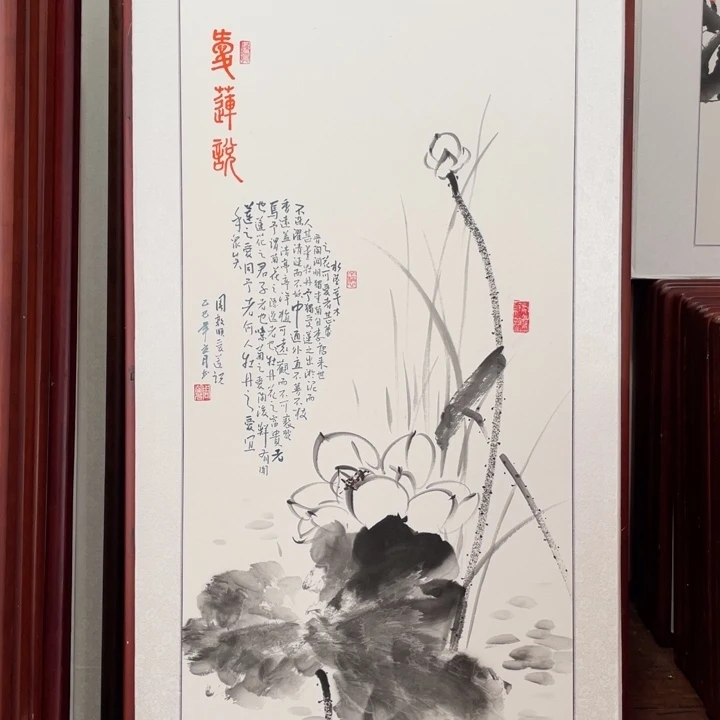 愛蓮說
水陸草木
之花可愛者甚蕃
晉陶淵明獨愛菊自李唐来世
人甚愛牡丹予獨愛蓮之出淤泥而
不染濯清漣而不妖中通外直不蔓不枝
香遠益清亭亭淨植可遠觀而不可褻翫
焉予謂菊花之隱逸者也牡丹花之富貴者
也蓮花之君子者也噫菊之愛陶後鮮有聞
蓮之愛同予者何人牡丹之愛宜
乎眾矣
周敦頤愛蓮說
乙巳年